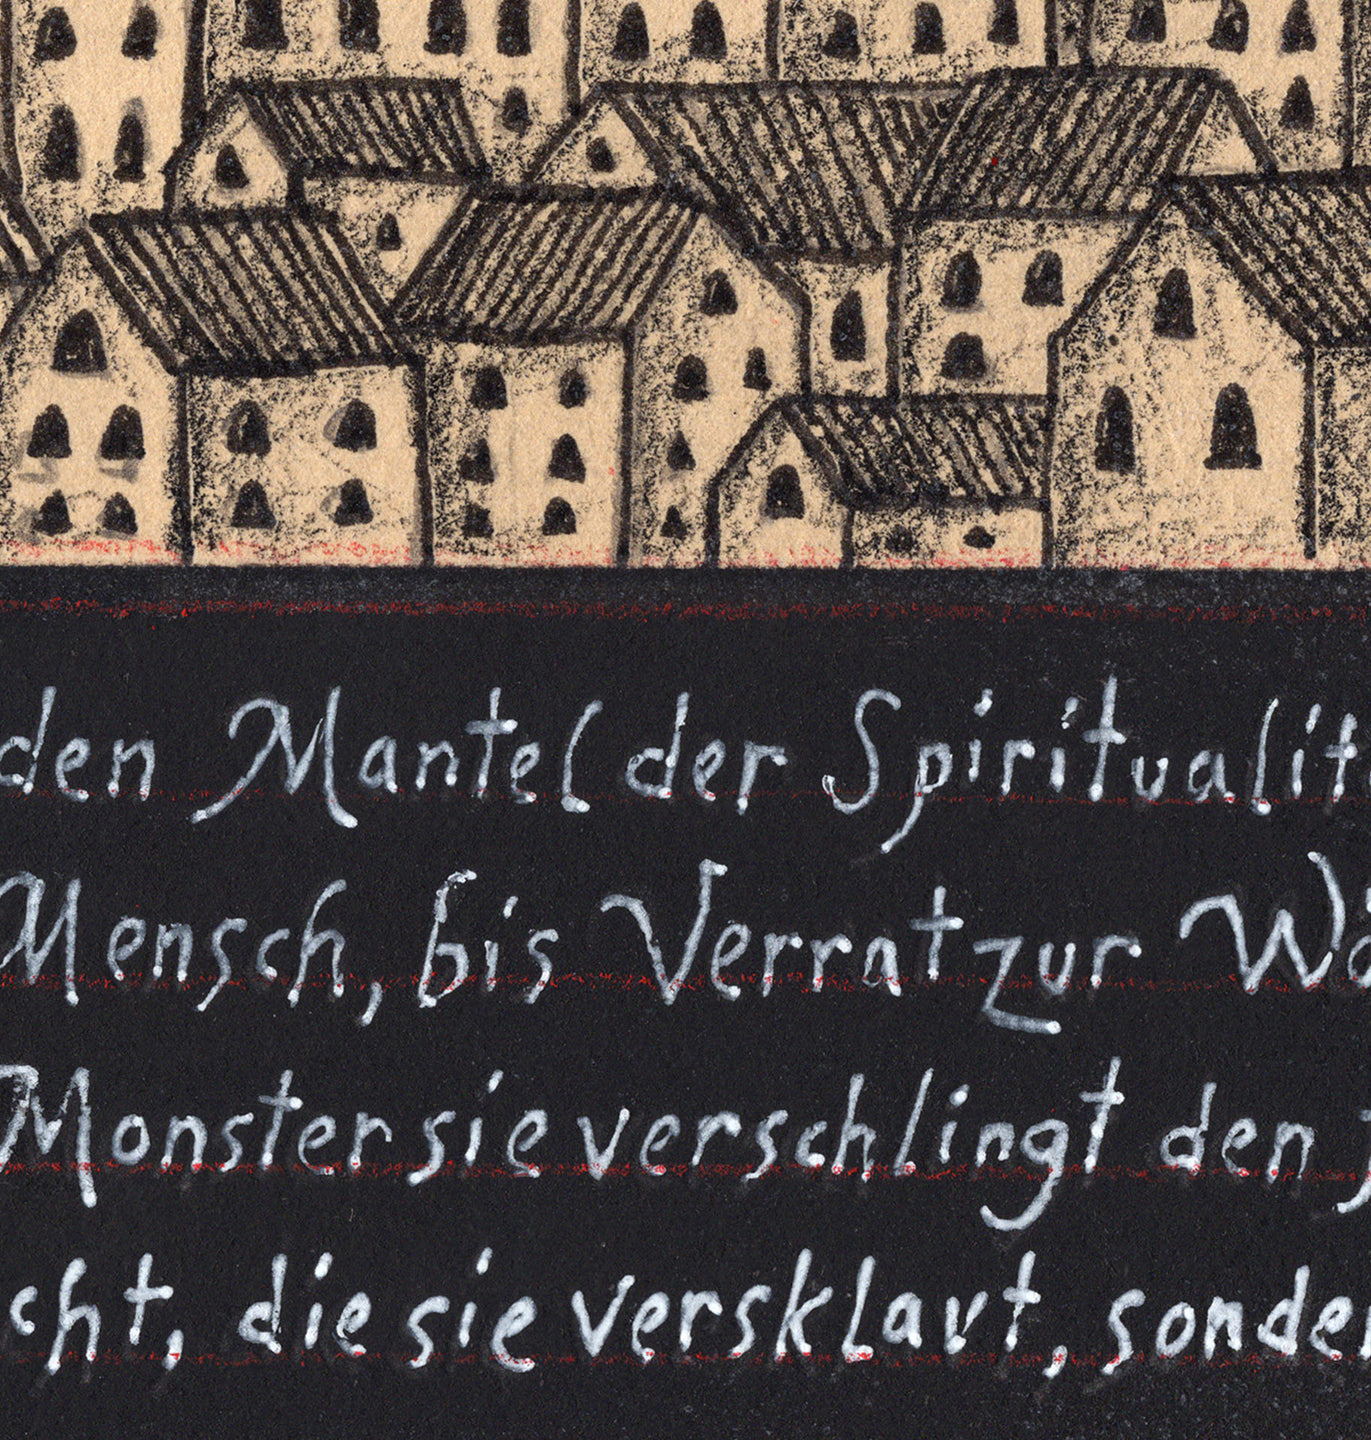 den Mantel der Spiritualit
Mensch, bis Verrat zur Wa
Monster sie verschlingt den
cht, die sie versklavt, sonde